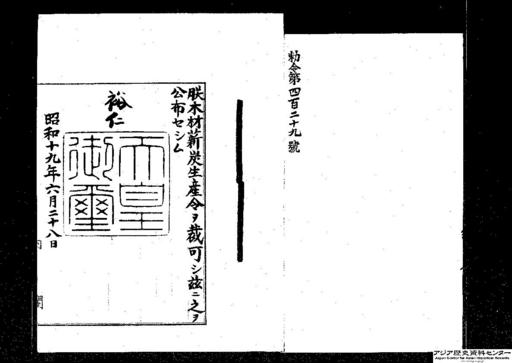 勅令第四百二十九號
朕木材薪炭生産令ヲ裁可シ玆ニ之ヲ
公布セシム
裕仁
天皇御璽
昭和十九年六月二十八日
アジア歴史資料センター
Japan Center for Asian Historical Records